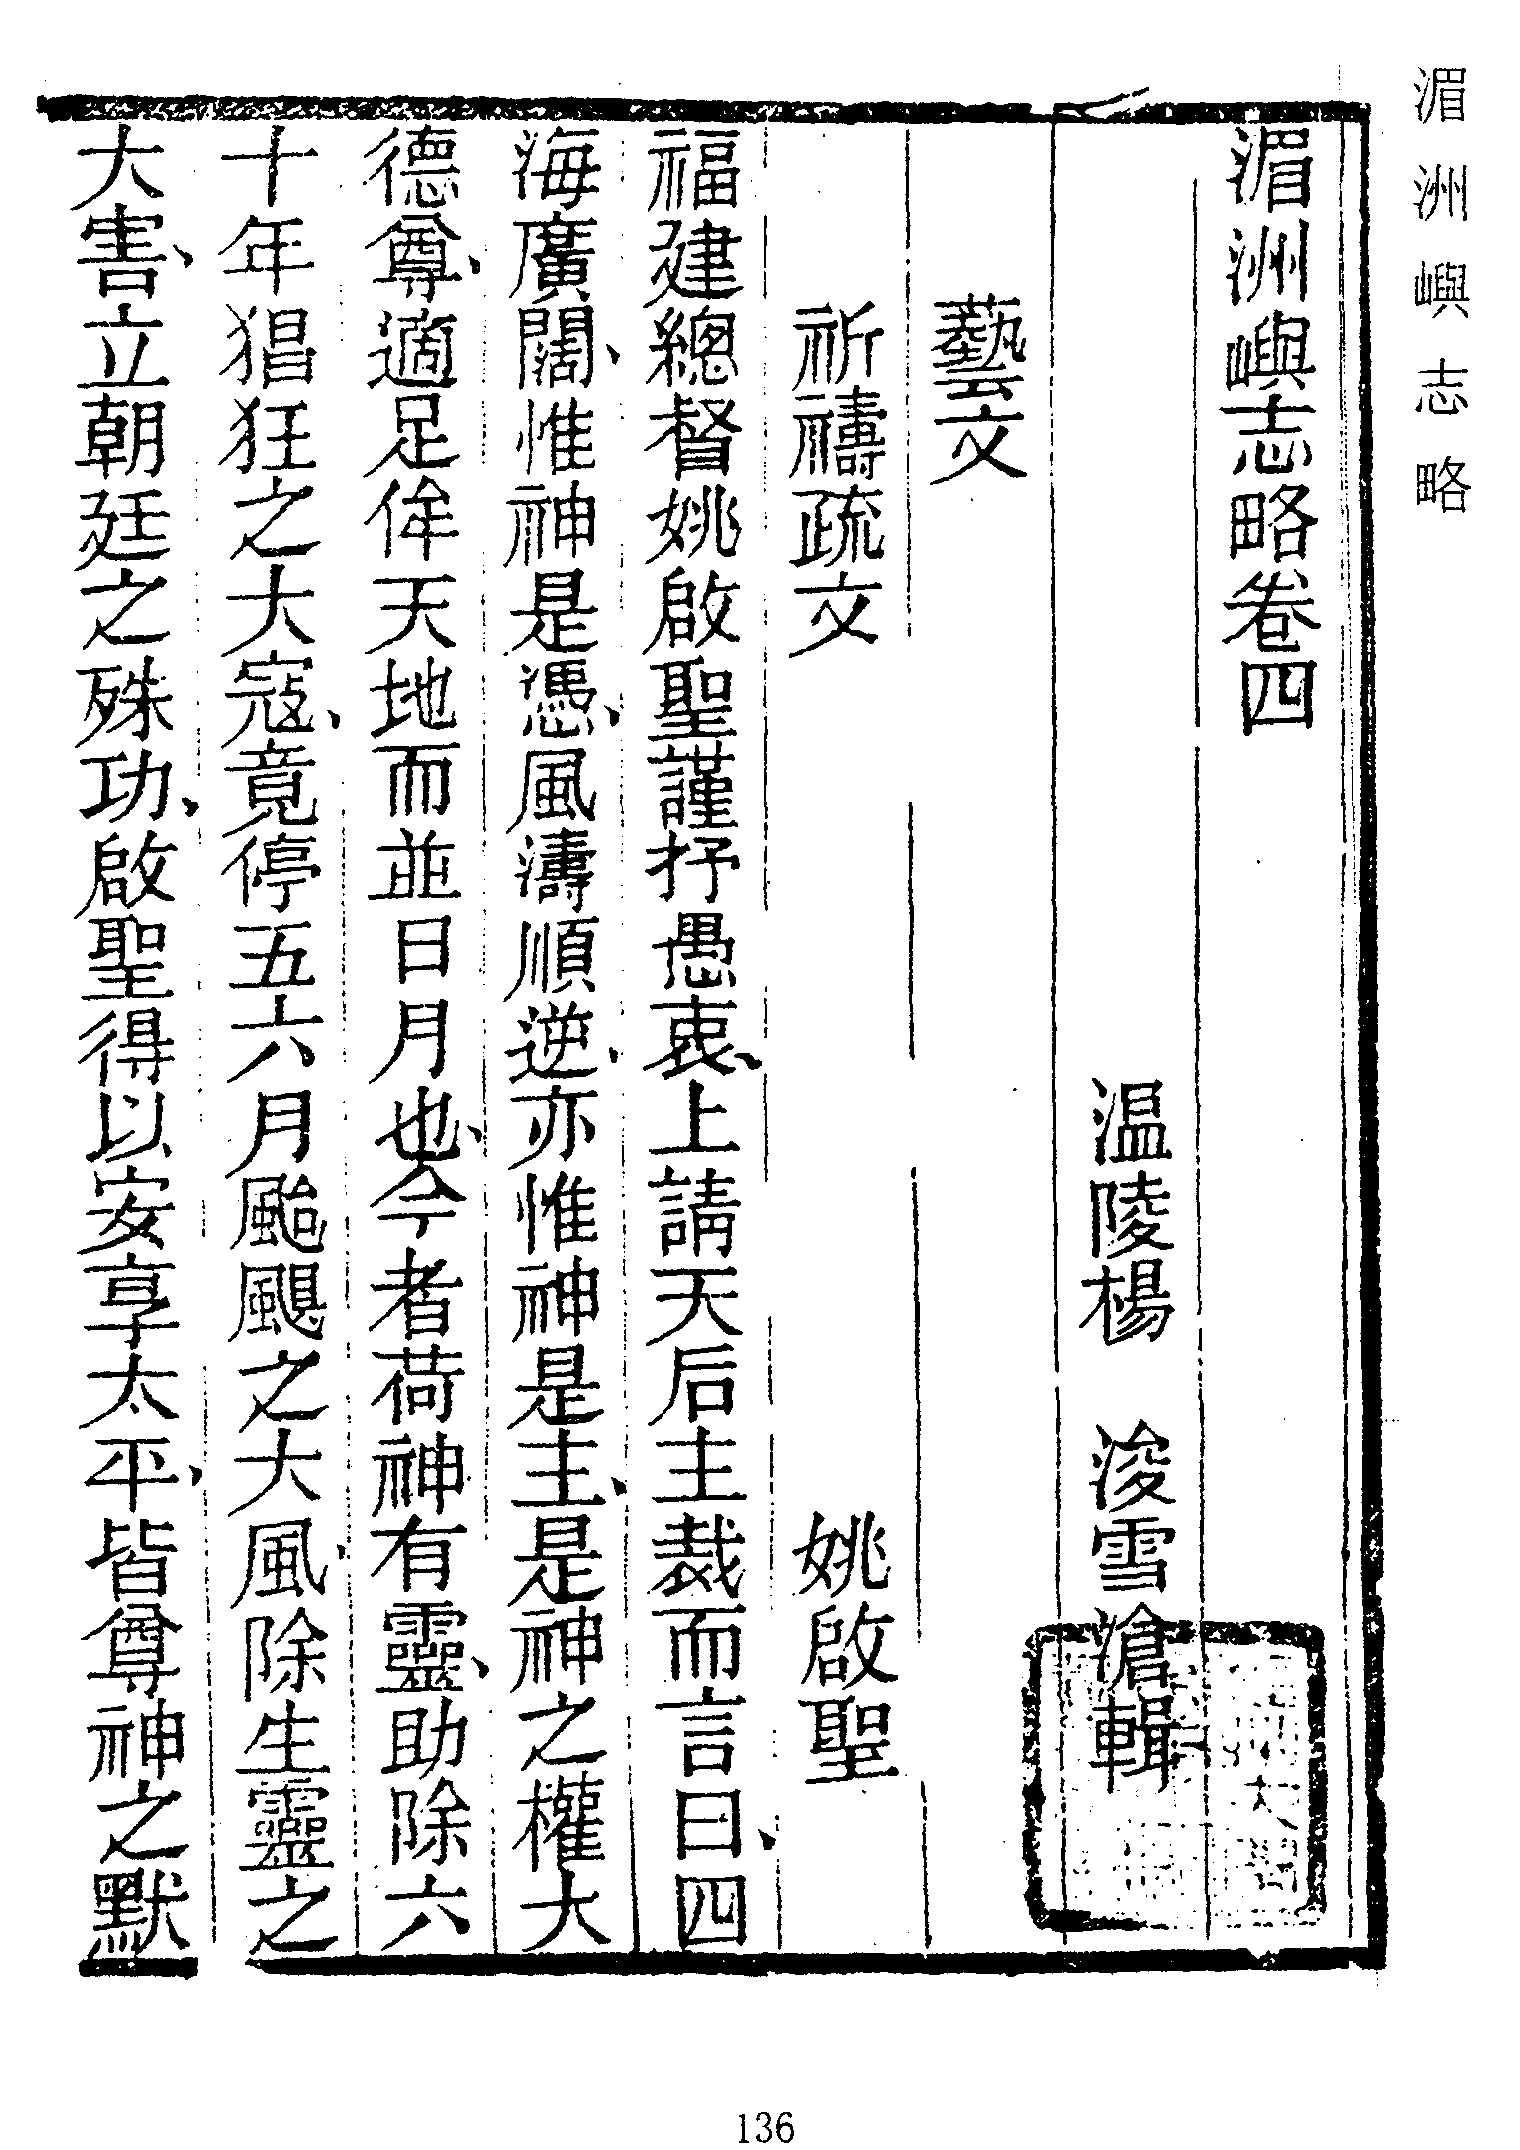 湄洲嶼志略
湄洲嶼志略卷四
温陵楊　浚雪滄輯
藝文
祈禱疏文　姚啟聖
福建總督姚啟聖謹抒愚衷、上請天后主裁而言曰、四
海廣闊、惟神是憑、風濤順逆、亦惟神是主、是神之權大
德尊、適足侔天地而並日月也、今者荷神有靈、助除六
十年猖狂之大寇、竟停五六月颱颶之大風、除生靈之
大害、立朝廷之殊功、啟聖得以安享太平、皆尊神之默
136